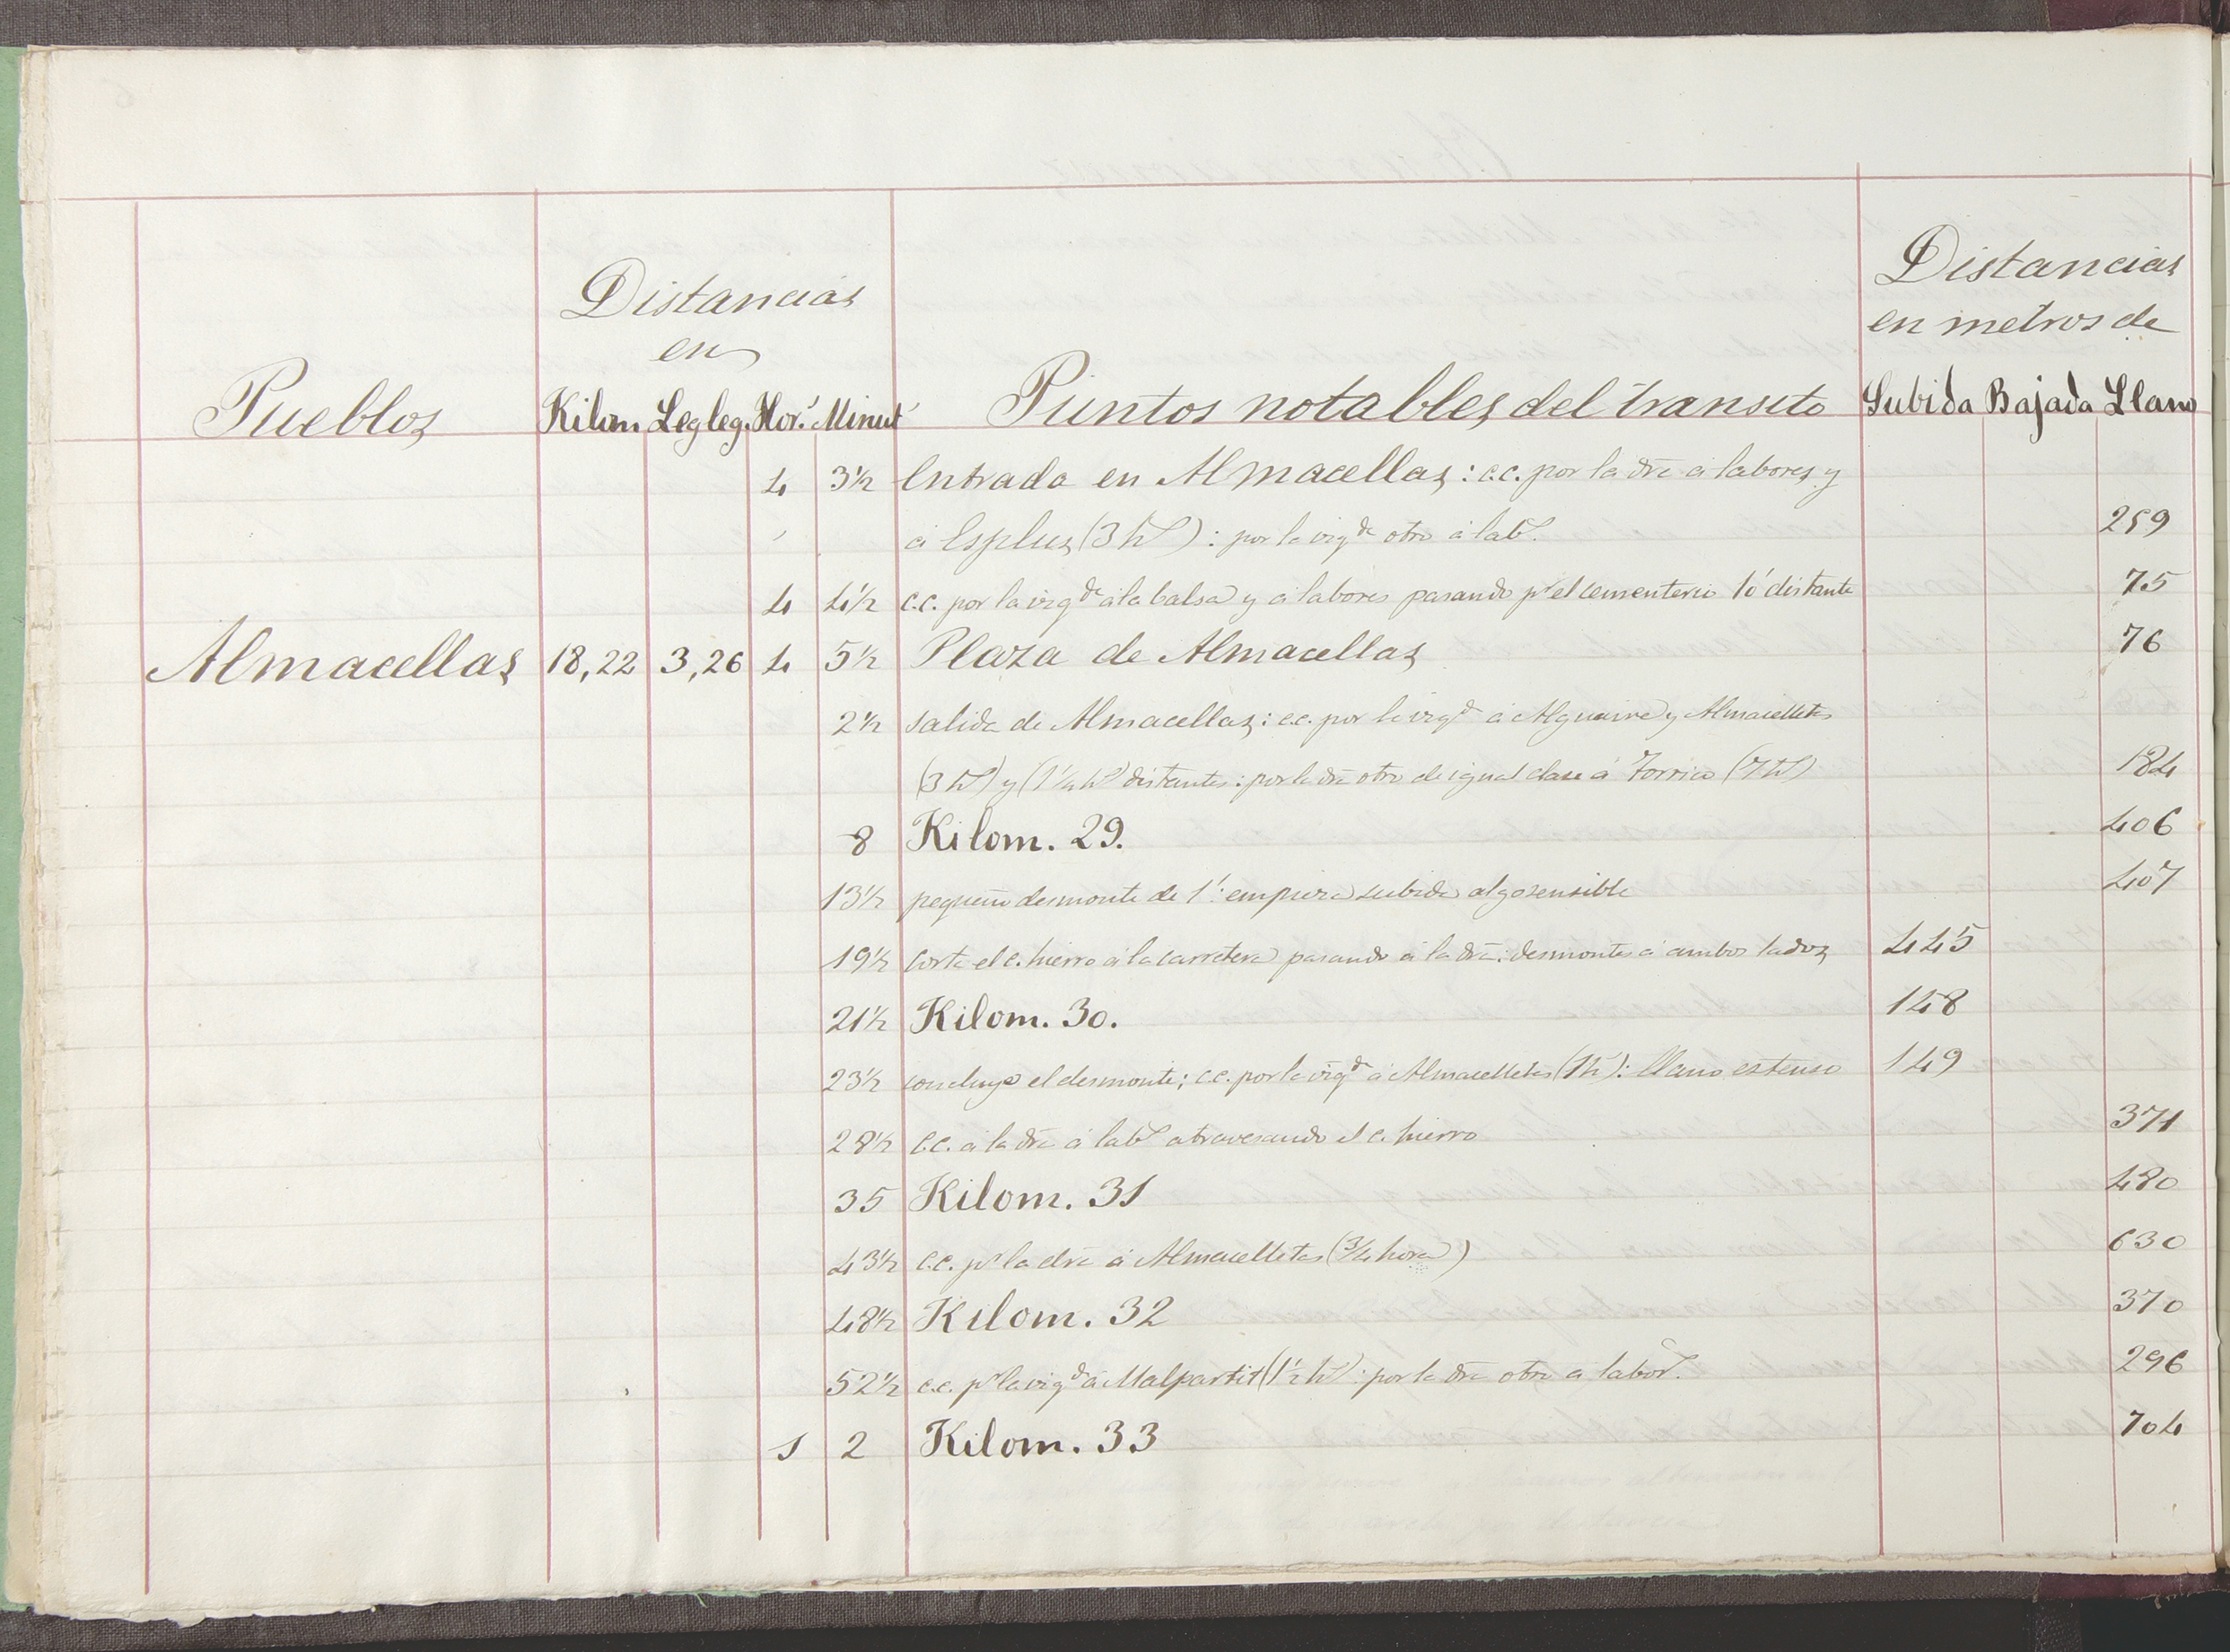 Distancias
en
Distancias
en metros de
Pueblos Kilom. Leg leg. Hor.s Minut.s Puntos notables del transito Subida Bajada Llano
4 3½ Entrada en Almacellas: c.c. por la dra á labores y
á Esplus (3 hs): por la izqda otro á labs. 259
4 4½ c.c. por la izqda á la balsa y á labores pasando pr el cementerio 10' distante 75
Almacellas 18,22 3,26 4 5½ Plaza de Almacellas 76
2½ salida de Almacellas: c.c. por la izqda á Alguaire y Almacelletas
(3 hs) y (1½ hs) distantes: por la dra otro de igual clase á (7 hs) 184
8 Kilom. 29. 406
13½ pequeño desmonte de 1': empieza subida algo sensible 407
19½ corta el c. hierro á la carretera pasando á la dra: desmontes á ambos lados 445
21½ Kilom. 30. 148
23½ concluye el desmonte; c.c. por la izqda á Almacelletas (1 h): llano estenso 149
28½ c.c. á la dra á labs atravesando el c. hierro 371
35 Kilom. 31 480
43½ c.c. pr la dra á Almacelletas (¾ hora) 630
48½ Kilom. 32 370
52½ c.c. pr la izqda á Malpartit (1½ hs): por la dra otro á labors. 296
1 2 Kilom. 33 704